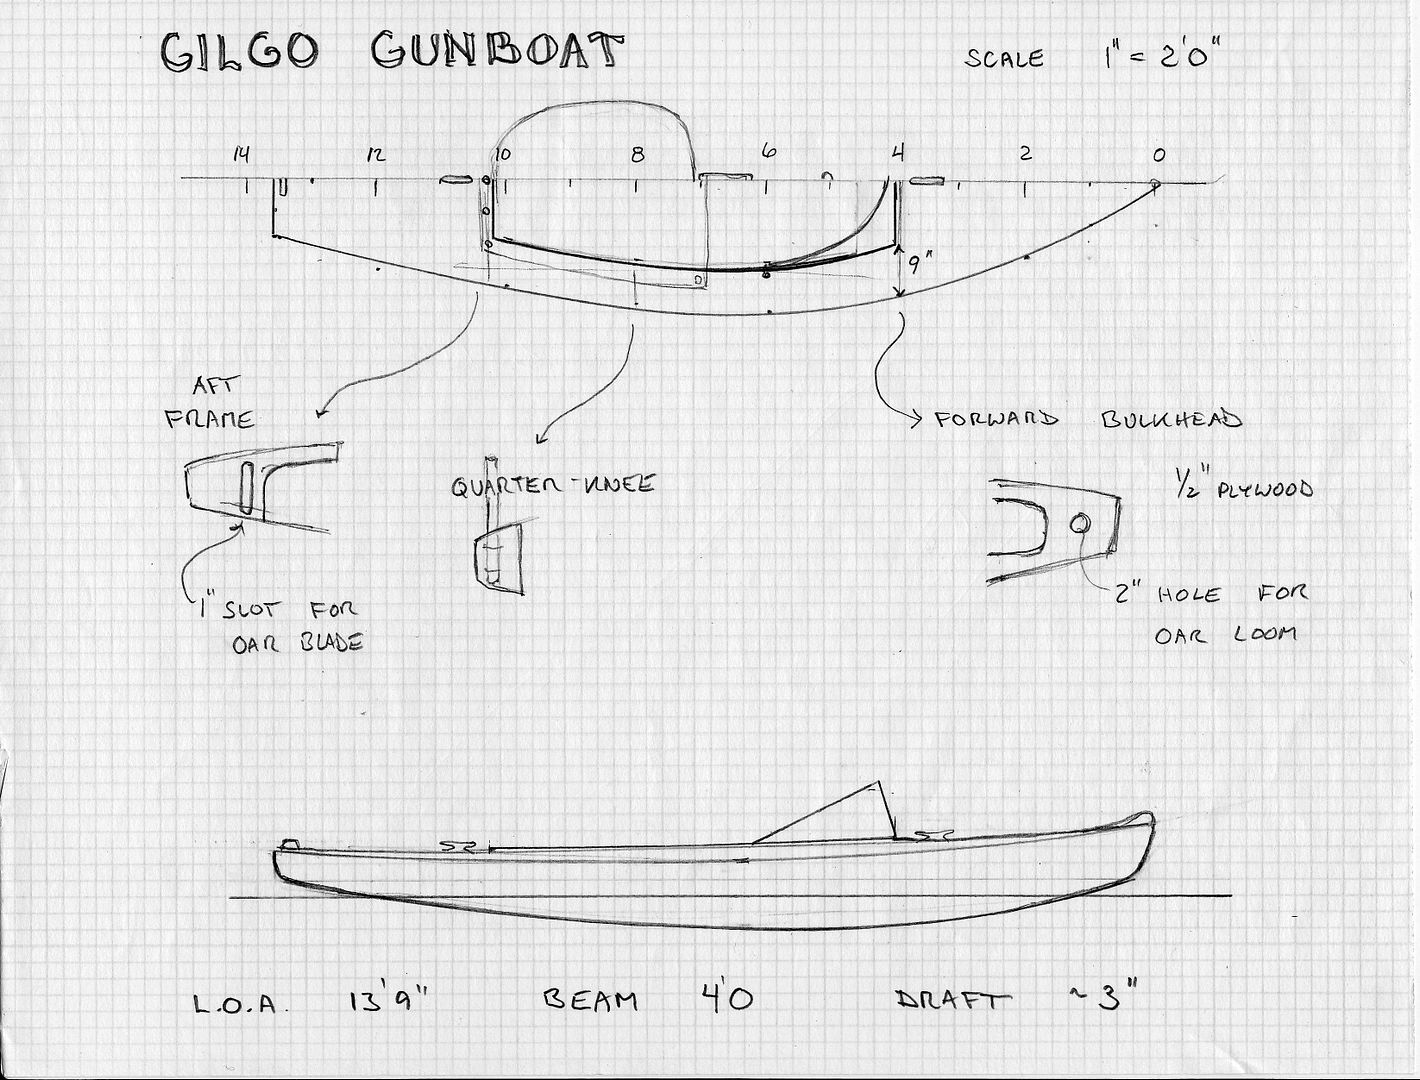 GILGO GUNBOAT
SCALE 1" = 2'0"
14 12 10 8 6 4 2 0
9"
AFT
FRAME
FORWARD BULKHEAD
QUARTER-KNEE
1/2" PLYWOOD
1" SLOT FOR
OAR BLADE
2" HOLE FOR
OAR LOOM
L.O.A. 13'9" BEAM 4'0 DRAFT ~3"